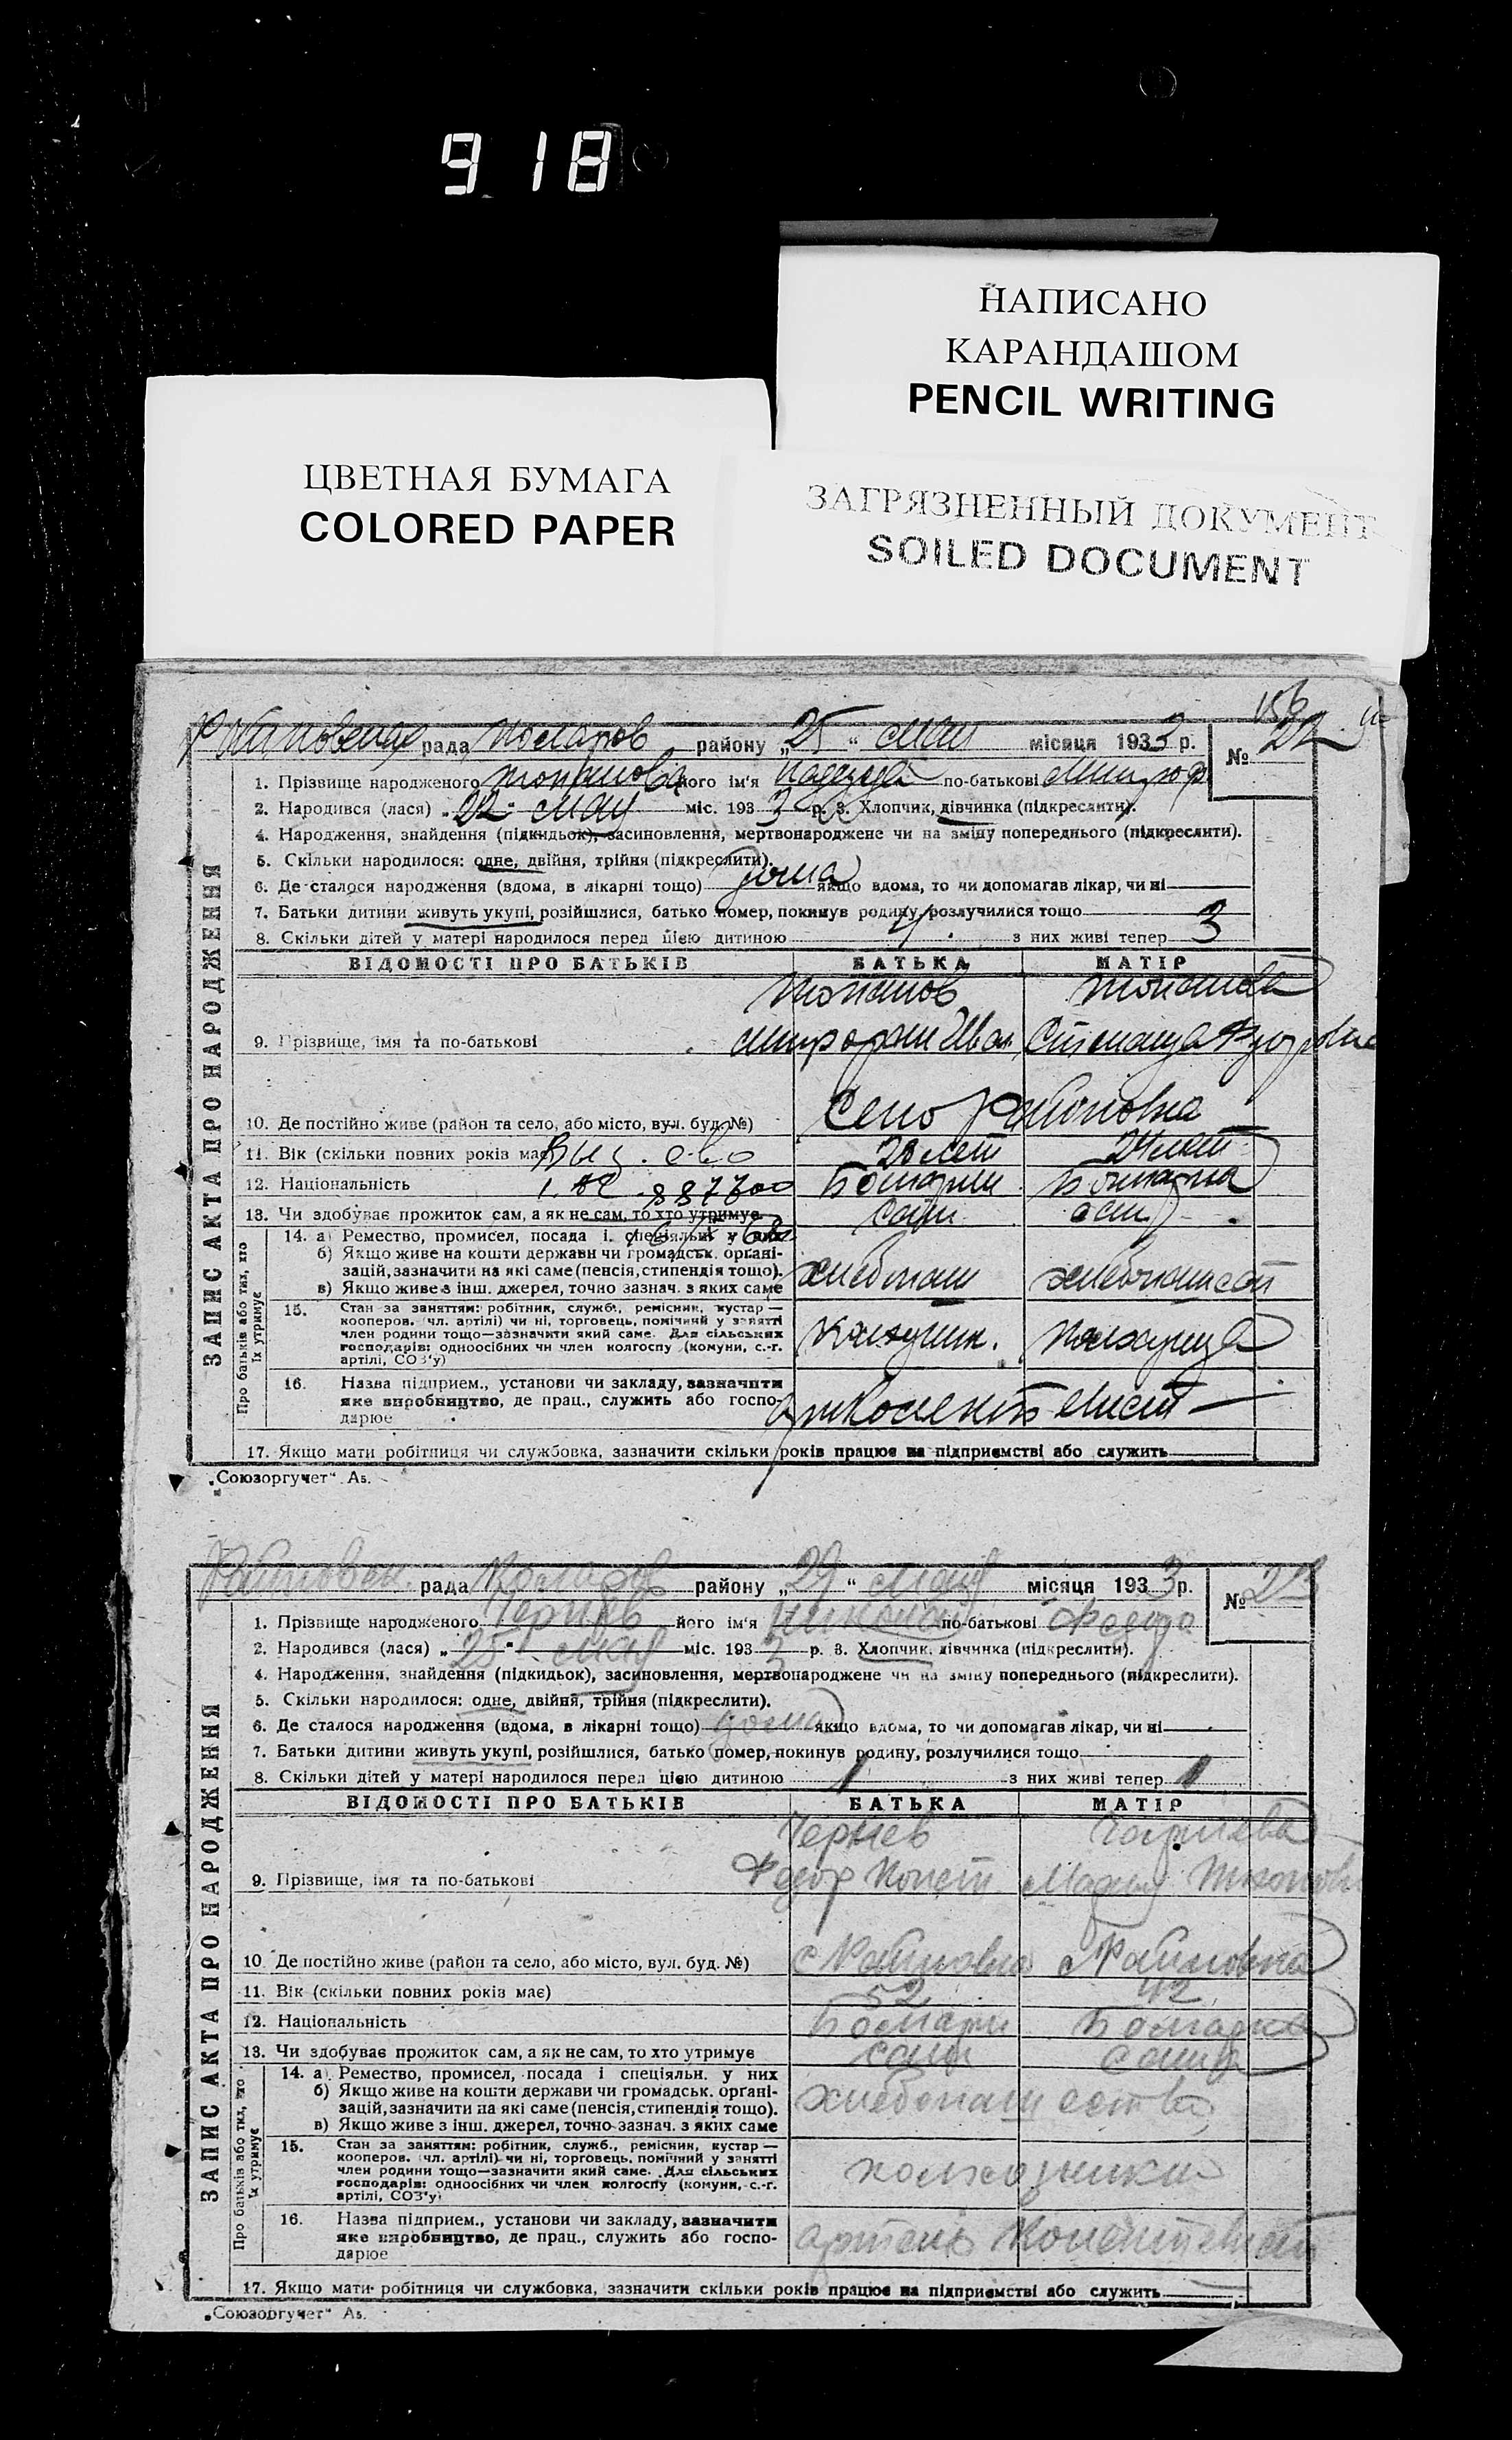 918
НАПИСАНО
КАРАНДАШОМ
PENCIL WRITING
ЦВЕТНАЯ БУМАГА
COLORED PAPER
ЗАГРЯЗНЕННЫЙ ДОКУМЕНТ
SOILED DOCUMENT
156
рада районy „25 “ мая місяця 1933 р. № 22
1. Прізвище народженого його ім'я Надежда по-батькові
2. Народився (лася) „22 “ мая міс. 193 3 р. 3. Хлопчик, дівчинка (підкреслити).
4. Народження, знайдення (підкидьок), засиновлення, мертвонароджене чи на зміну попереднього (підкреслити).
5. Скільки народилося: одне, двійня, трійня (підкреслити).
6. Де сталося народження (вдома, в лікарні тощо) дома якщо вдома, то чи допомагав лікар, чи ні
7. Батьки дитини живуть укупі, розійшлися, батько помер, покинув родину, розлучилися тощо
8. Скільки дітей у матері народилося перед цією дитиною 4. з них живі тепер 3
ЗАПИС АКТА ПРО НАРОДЖЕННЯ
ВІДОМОСТІ ПРО БАТЬКІВ БАТЬКА МАТІР
9. Прізвище, імя та по-батькові
10. Де постійно живе (район та село, або місто, вул. буд. №) Село
11. Вік (скільки повних років має) 28 лет 24 лет
12. Національність
13. Чи здобуває прожиток сам, а як не сам, то хто утримує сам
Про батьків або тих, хто їх утримує
14. а) Ремество, промисел, посада і спеціяльн. у них
б) Якщо живе на кошти держави чи громадськ. органі-
зацій, зазначити на які саме (пенсія, стипендія тощо).
в) Якщо живе з інш. джерел, точно зазнач. з яких саме
15. Стан за заняттям: робітник, служб., ремісник, кустар —
кооперов. (чл. артілі) чи ні, торговець, помічний у занятті
член родини тощо—зазначити який саме. Для сільських
господарів: одноосібних чи член колгоспу (комуни, с.-г.
артілі, СОЗ'у)
16. Назва підприєм., установи чи закладу, зазначити
яке виробництво, де прац., служить або госпо-
дарює
17. Якщо мати робітниця чи службовка, зазначити скільки років працює на підприємстві або служить
„Союзоргучет“ А5.
рада району „29 “ мая місяця 193 3 р. № 23
1. Прізвище народженого Чернев його ім'я Николай по-батькові Федор
2. Народився (лася) „25 “ мая міс. 193 3 р. 3. Хлопчик, дівчинка (підкреслити).
4. Народження, знайдення (підкидьок), засиновлення, мертвонароджене чи на зміну попереднього (підкреслити).
5. Скільки народилося: одне, двійня, трійня (підкреслити).
6. Де сталося народження (вдома, в лікарні тощо) дома якщо вдома, то чи допомагав лікар, чи ні
7. Батьки дитини живуть укупі, розійшлися, батько помер, покинув родину, розлучилися тощо
8. Скільки дітей у матері народилося перед цією дитиною 1 з них живі тепер 1
ЗАПИС АКТА ПРО НАРОДЖЕННЯ
ВІДОМОСТІ ПРО БАТЬКІВ БАТЬКА МАТІР
Чернев Чернева
9. Прізвище, імя та по-батькові Федор Конст Мария
10. Де постійно живе (район та село, або місто, вул. буд. №)
11. Вік (скільки повних років має) 52 42
12. Національність
13. Чи здобуває прожиток сам, а як не сам, то хто утримує сам сама
Про батьків або тих, хто їх утримує
14. а) Ремество, промисел, посада і спеціяльн. у них
б) Якщо живе на кошти держави чи громадськ. органі-
зацій, зазначити на які саме (пенсія, стипендія тощо). хлебопашество
в) Якщо живе з інш. джерел, точно зазнач. з яких саме
15. Стан за заняттям: робітник, служб., ремісник, кустар —
кооперов. (чл. артілі) чи ні, торговець, помічний у занятті
член родини тощо—зазначити який саме. Для сільських колхозники
господарів: одноосібних чи член колгоспу (комуни, с.-г.
артілі, СОЗ'у)
16. Назва підприєм., установи чи закладу, зазначити
яке виробництво, де прац., служить або госпо- артель
дарює
17. Якщо мати робітниця чи службовка, зазначити скільки років працює на підприємстві або служить
„Союзоргучет“ А5.